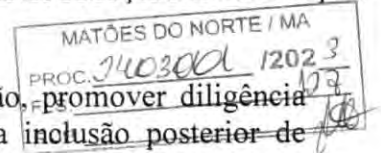 MATÕES DO NORTE / MA
PROC. 2403001 /2023
ão, promover diligência
FLS. 127
a inclusão posterior de